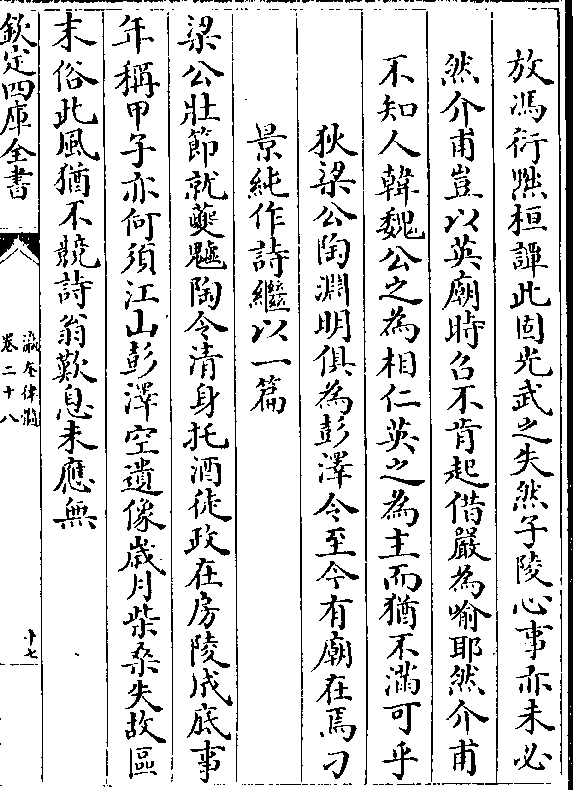 放馮衍黙桓譚此固光武之失然子陵心事亦未必
然介甫豈以英廟時召不肯起借嚴為喻耶然介甫
不知人韓魏公之為相仁英之為主而猶不滿可乎
狄梁公陶淵明俱為彭澤令至今有廟在焉刁
景純作詩繼以一篇
梁公壯節就夔魖陶令清身托酒徒政在房陵成底事
年稱甲子亦何須江山彭澤空遺像歳月柴桑失故區
末俗此風猶不競詩翁歎息未應無
欽定四庫全書
瀛奎律髓
卷二十八
十七